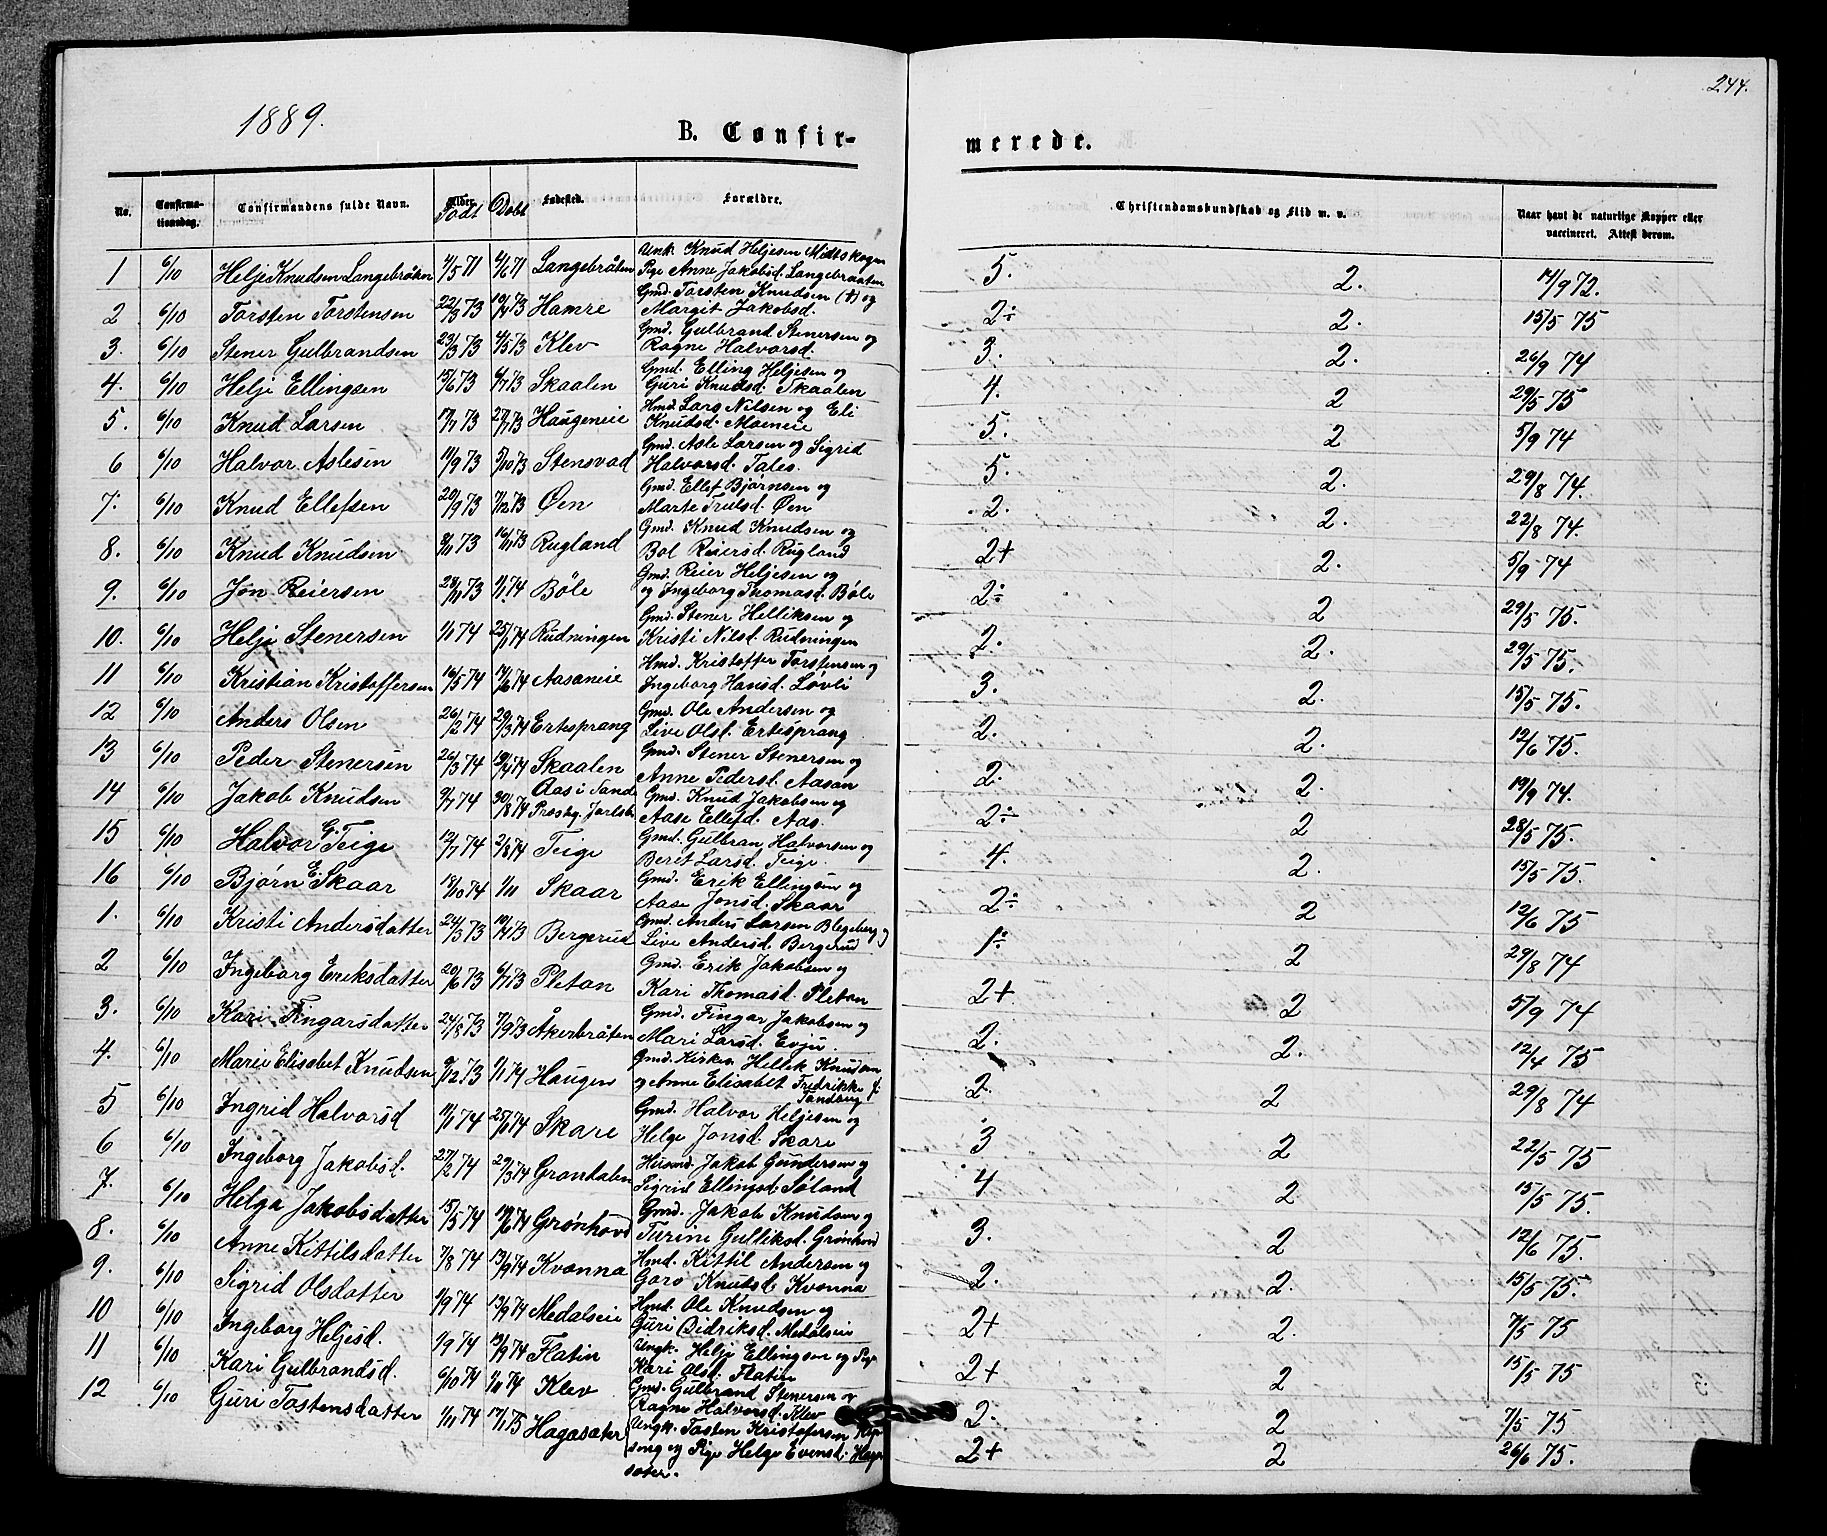 244.
1889.
B. Confirmerede.
No. Confirmationsdag. Confirmandens fulde Navn. Alder. Født Døbt Fødested. Forældre. Christendomskundskab og Flid m. v. Naar havt de naturlige Kopper eller vaccineret. Attest derom.
1 6/10 Helje Knudsen Langebråten 4/5 71 4/6 71 Langebråten Unk. Knud Heljesen Midtskogen Pige Anne Jakobsd. Langebraaten 5. 2. 14/9 72.
2 6/10 Torsten Torstensen 22/3 73 Hamre Gmd. Torsten Knudsen (†) og Margit Jakobsd. 2÷ 2. 15/5 75
3. 6/10 Stener Gulbrandsen 23/3 73 4/5 73 Klev Gmd. Gulbrand Stenersen og Ragne Halvorsd. 3. 2. 26/9 74
4. 6/10 Helje Ellingsen 15/6 73 6/7 73 Skaalen Gmd. Elling Heljesen og Guri Knudsd. Skaalen 4. 2 29/5 75
5. 6/10 Knud Larsen 17/7 73 27/7 73 Haugeneie Hmd. Lars Nilsen og Eli Knudsd. Moeneie 5. 2 5/9 74
6 6/10 Halvor Aslesen 11/9 73 5/10 73 Stensvad Gmd. Asle Larsen og Sigrid Halvorsd. 5. 2. 29/8 74.
7. 6/10 Knud Ellefsen 20/9 73 7/12 73 Øen Gmd. Ellef Bjørnsen og Marte Trulsd. Øen 2. 2. 22/8 74.
8. 6/10 Knud Knudsen 9/11 73 16/11 73 Rugland Gmd. Knud Knudsen og Bol Reiersd. Rugland 2+ 2. 5/9 74
9. 6/10 Jon Reiersen 28/11 73 1/1 74 Böle Gmd. Reier Heljesen og og Ingeborg Thomasd. Böle 2÷ 2 29/5 75.
10. 6/10 Helje Stenersen 1/1 74 25/1 74 Rudningen Gmd. Stener Helliksen og Kristi Nilsd. Rudningen 2. 2. 29/5 75.
11 6/10 Kristian Kristoffersen 16/5 74 14/6 74 Aasaneie Hmd. Kristoffer Torstensen og Ingeborg Hansd. Løvli 3. 2. 15/5 75.
12 6/10 Anders Olsen 26/2 74 29/3 74 Ertesprang Gmd. Ole Andersen og Live Olsd. Ertesprang 2. 2. 12/6 75.
13 6/10 Peder Stenersen 26/3 74 19/4 74 Skaalen Gmd. Stener Stenersen og Anne Pedersd. Aasan 2. 2. 19/9 74.
14 6/10 Jakob Knudsen 9/7 74 30/8 74 Aas i Sande Præstg. Jarlsb. Gmd. Knud Jakobsen og Aase Ellefsd. Aas. 2÷ 2 28/5 75.
15 6/10 Halvor G. Teige 12/7 74 2/8 74 Teige Gmd. Gulbran Halvorsen og Beret Larsd. Teige. 4. 2. 15/5 75.
16 6/10 Bjørn E. Skaar 18/10 74 1/11 Skaar Gmd. Erik Ellingsen og Aase Jonsd. Skaar 2÷ 2 12/6 75
1. 6/10 Kristi Andersdatter 24/3 73 Bergerud Gmd. Anders Larsen Blegeberg og Live Andersd. Bergerud 1÷ 2 29/8 74
2 6/10 Ingeborg Eriksdatter 20/6 73 6/7 73 Pletan Gmd. Erik Jakobsen og Kari Thomasd. Pletan 2+ 2 5/9 74
3. 6/10 Kari Fingarsdatter 24/8 73 7/9 73 Åkerbråten Gmd. Fingar Jakobsen og Mari Larsd. Evju. 2. 2. 12/4 75
4. 6/10 Marie Elisabet Knudsen 9/12 73 1/1 74 Haugen Gmd. Kirkes. Hellik Knudsen og Anne Elisabet Fredrikke f. Tandberg 2. 2 29/8 74
5 6/10 Ingrid Halvorsd 11/1 74 25/1 74 Skare Gmd. Halvor Heljesen og Helge Jonsd. Skare 3 2 22/5 75
6 6/10 Ingeborg Jakobsd. 27/2 74 29/3 74 Grøndalen Husmd. Jakob Gundersen og Sigrid Ellingsd. Søland 4 2 15/5 75.
7. 6/10 Helga Jakobsdatter 15/5 74 14/6 74 Grønhovd Gmd. Jakob Knudsen og Turine Gulliksd. Grønhovd 3. 2 12/6 75.
8. 6/10 Anne Kittilsdatter 7/8 74 13/9 74 Kvanna Hmd. Kittil Andersen og Goro Knutsd. Kvanna 2. 2. 15/5 75.
9. 6/10 Sigrid Olsdatter 1/9 74 13/9 74 Medalseie Hmd. Ole Knudsen og Guri Didriksd. Medalseie 2+ 2. 7/5 75
10 6/10 Ingeborg Heljesd. 1/9 74 Flatin Ungk. Helje Ellingsen og Pige Kari Olsd. Flatin 2+ 2 15/5 75
11 6/10 Kari Gulbrandsd. 6/10 74 1/11 74 Klev Gmd. Gulbrand Stenersen og Ragne Halvorsd. Klev 2. 2 7/5 75
12 6/10 Guri Tostensdatter 1/11 74 17/1 75 Hagasæter Ungk. Tosten Kristofersen og Pige Helge Evensd. Hagasæter. 2+ 2 26/6 75.